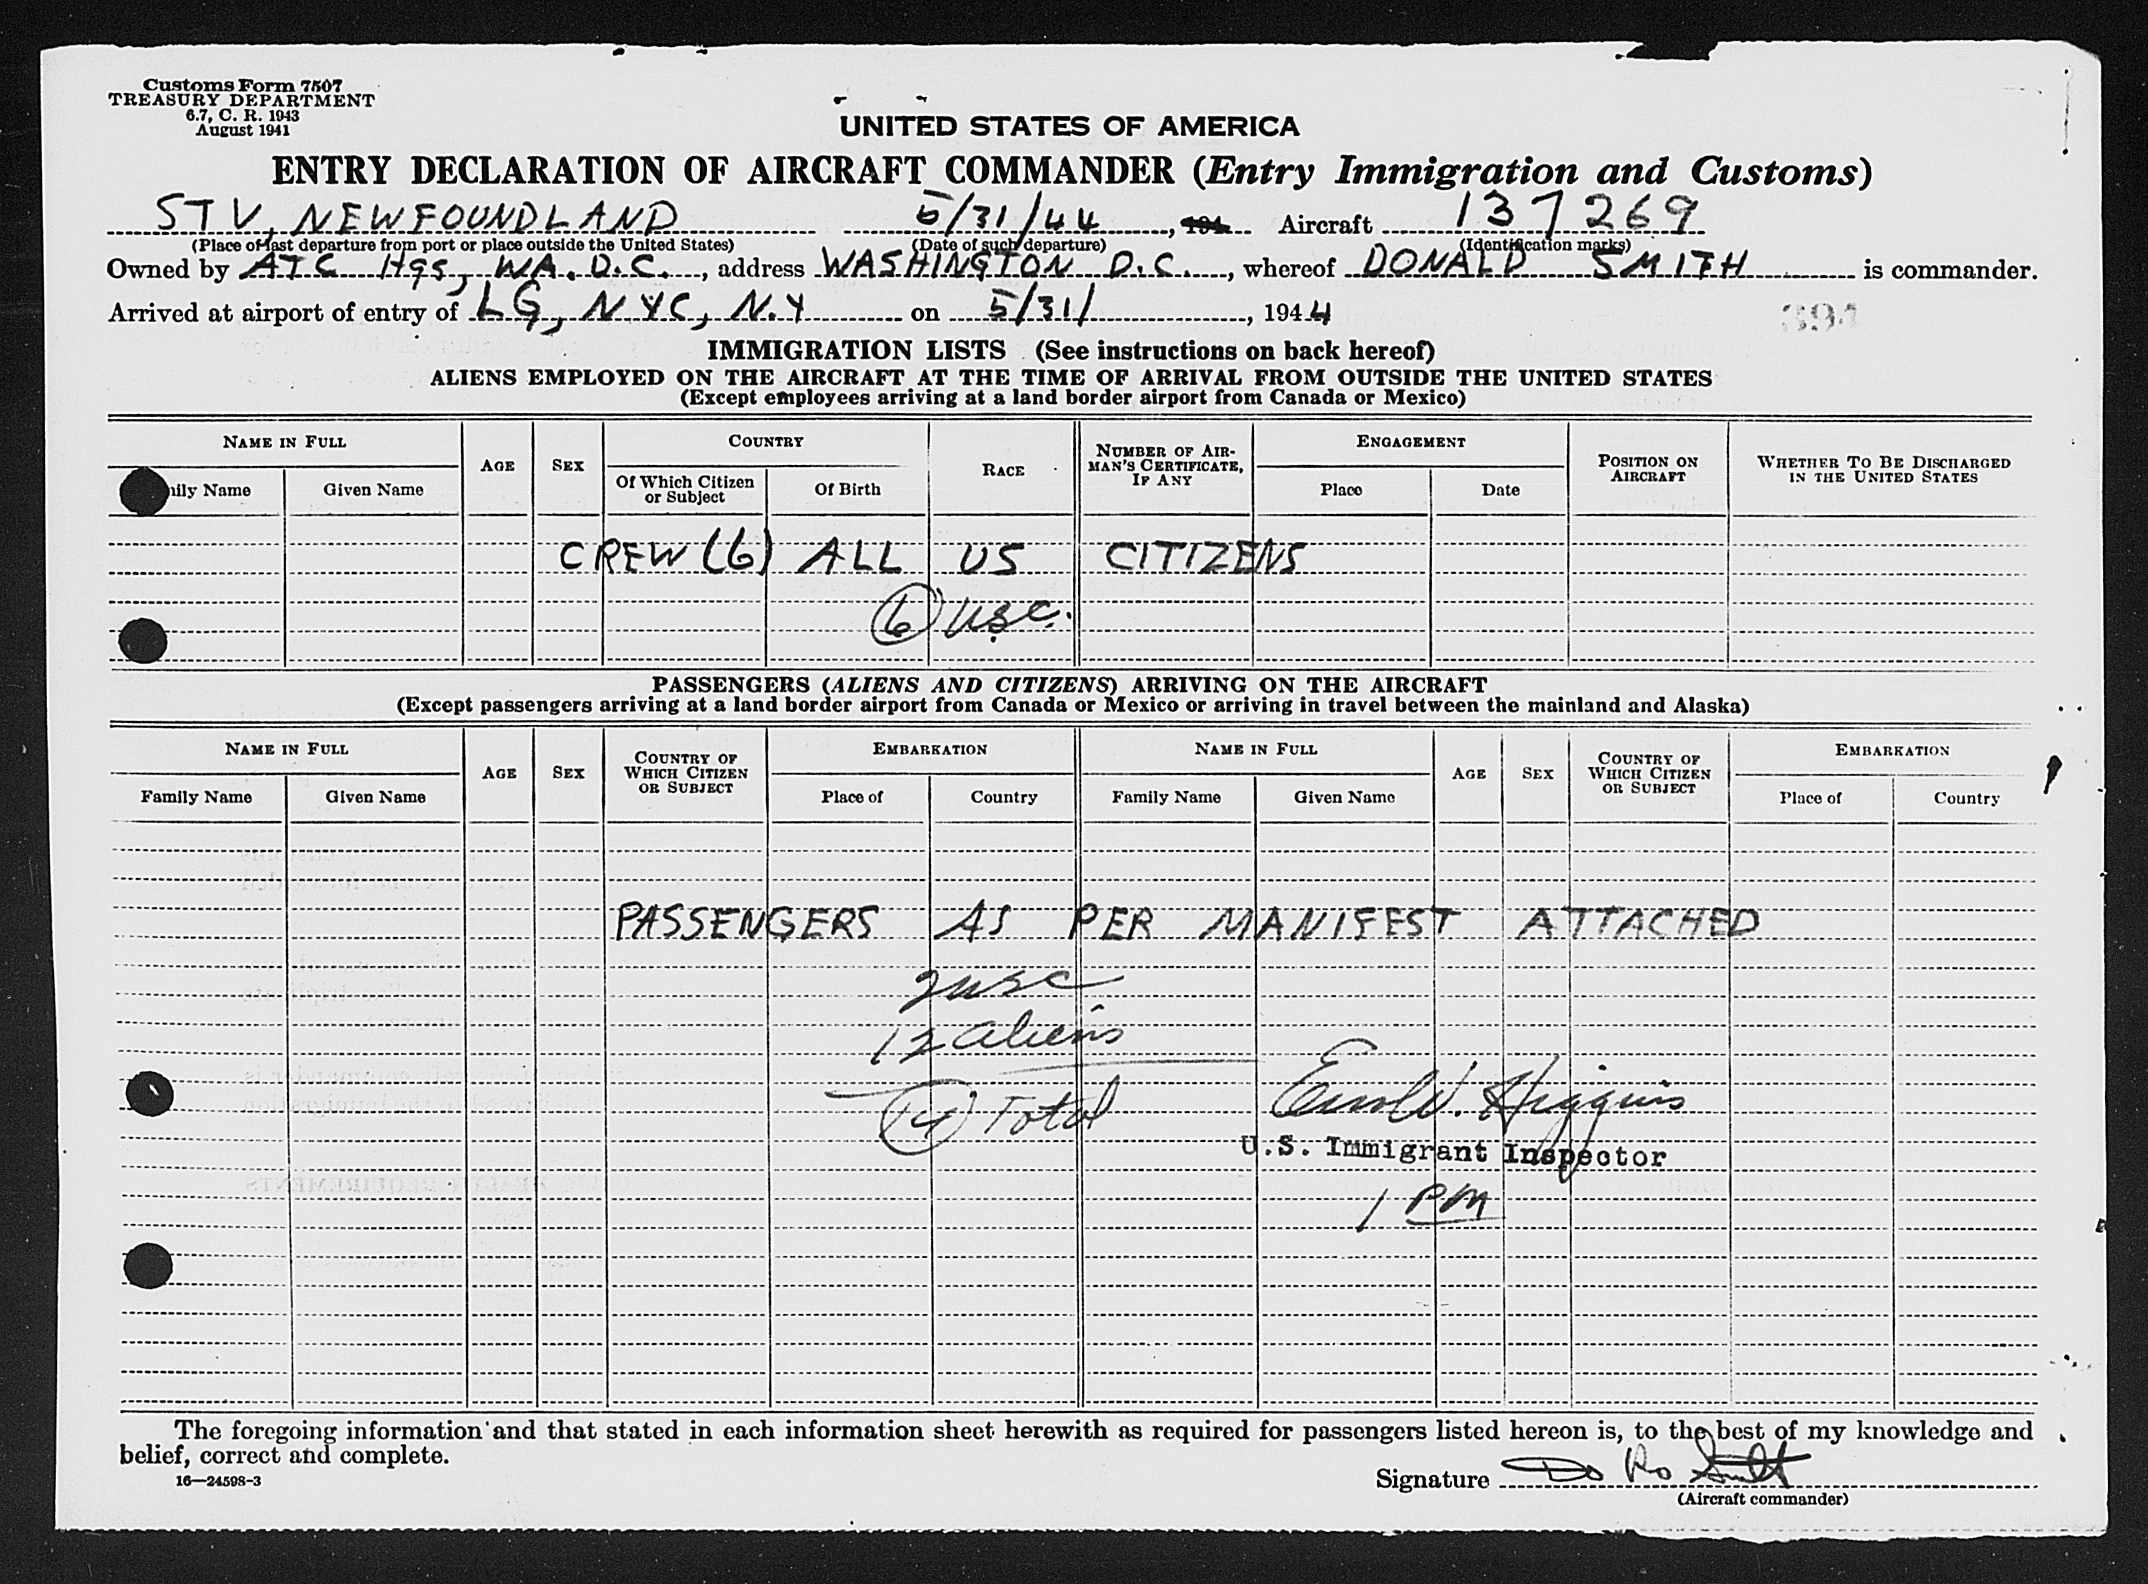 Customs Form 7507
TREASURY DEPARTMENT
6.7, C. R. 1943
August 1941
UNITED STATES OF AMERICA
ENTRY DECLARATION OF AIRCRAFT COMMANDER (Entry Immigration and Customs)
STV, NEWFOUNDLAND 5/31/44, 194 Aircraft 137269
(Place of last departure from port or place outside the United States) (Date of such departure) (Identification marks)
Owned by ATC Hqs, WA. D.C., address WASHINGTON D.C., whereof DONALD SMITH is commander.
Arrived at airport of entry of LG, NYC, N.Y on 5/31/, 1944
394
IMMIGRATION LISTS (See instructions on back hereof)
ALIENS EMPLOYED ON THE AIRCRAFT AT THE TIME OF ARRIVAL FROM OUTSIDE THE UNITED STATES
(Except employees arriving at a land border airport from Canada or Mexico)
NAME IN FULL AGE SEX COUNTRY RACE NUMBER OF AIRMAN'S CERTIFICATE, IF ANY ENGAGEMENT POSITION ON AIRCRAFT WHETHER TO BE DISCHARGED IN THE UNITED STATES
ily Name Given Name Of Which Citizen or Subject Of Birth Place Date
CREW (6) ALL US CITIZENS
6 usc.
PASSENGERS (ALIENS AND CITIZENS) ARRIVING ON THE AIRCRAFT
(Except passengers arriving at a land border airport from Canada or Mexico or arriving in travel between the mainland and Alaska)
NAME IN FULL AGE SEX COUNTRY OF WHICH CITIZEN OR SUBJECT EMBARKATION NAME IN FULL AGE SEX COUNTRY OF WHICH CITIZEN OR SUBJECT EMBARKATION
Family Name Given Name Place of Country Family Name Given Name Place of Country
PASSENGERS AS PER MANIFEST ATTACHED
2 usc
12 aliens
14 Total
W. Higgins
U.S. Immigrant Inspector
1 PM
The foregoing information and that stated in each information sheet herewith as required for passengers listed hereon is, to the best of my knowledge and
belief, correct and complete.
16—24598-3
Signature Smith
(Aircraft commander)